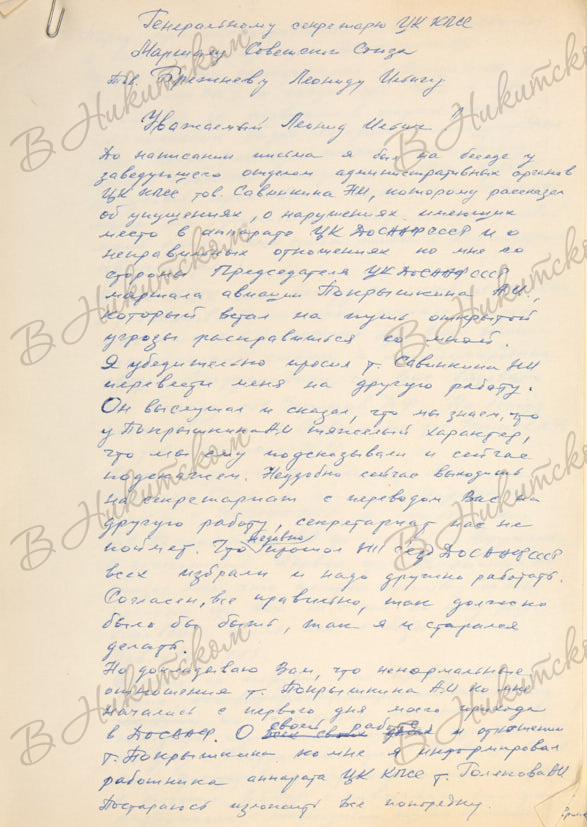 Генеральному секретарю ЦК КПСС
Маршалу Советского Союза
тов. Брежневу Леониду Ильичу
Уважаемый Леонид Ильич!
До написания письма я был на беседе у
заведующего отделом административных органов
ЦК КПСС тов. Савинкина Н.И., которому рассказал
об упущениях, о нарушениях имеющих
место в аппарате ЦК ДОСААФ СССР и о
неправильных отношениях ко мне со
стороны Председателя ЦК ДОСААФ СССР
маршала авиации Покрышкина А.И.,
который встал на путь открытой
угрозы расправиться со мной.
Я убедительно просил т. Савинкина НИ
перевести меня на другую работу.
Он выслушал и сказал, что мы знаем, что
у Покрышкина А.И тяжелый характер,
что мы ему подсказывали и сейчас
подскажем. Неудобно сейчас выходить
на секретариат с переводом Вас на
другую работу, секретариат нас не
поймет. Что недавно прошел съезд ДОСААФ СССР
всех избрали и надо дружно работать.
Согласен, все правильно, так должно
было бы быть, так я и старался
делать.
Но докладываю Вам, что ненормальные
отношения т. Покрышкина А.И ко мне
начались с первого дня моего прихода
в ДОСААФ. О своей работе и отношении
т. Покрышкина ко мне я информировал
работника аппарата ЦК КПСС т. Голякова
Постараюсь изложить все попорядку.
В Никитском
В Никитском
В Никитском
В Никитском
В Никитском
В Никитском
В Никитском
В Никитском